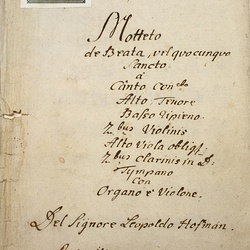 Motteto
de Beata, vel quocunque
Sancto
à
Canto Con.to
Alto, Tenore
Basso Ripieno
2.bus Violinis
Alto Viola oblig:
2.bus Clarinis in D.
Tympano
Con
Organo e Violone.
Del Signore Leopoldo Hofman.